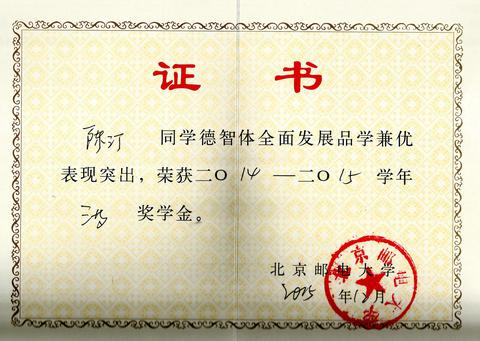 证 书
陈汀 同学德智体全面发展品学兼优
表现突出，荣获二〇14—二〇15学年
奖学金。
北京邮电大学
2015年12月
北京邮电大学